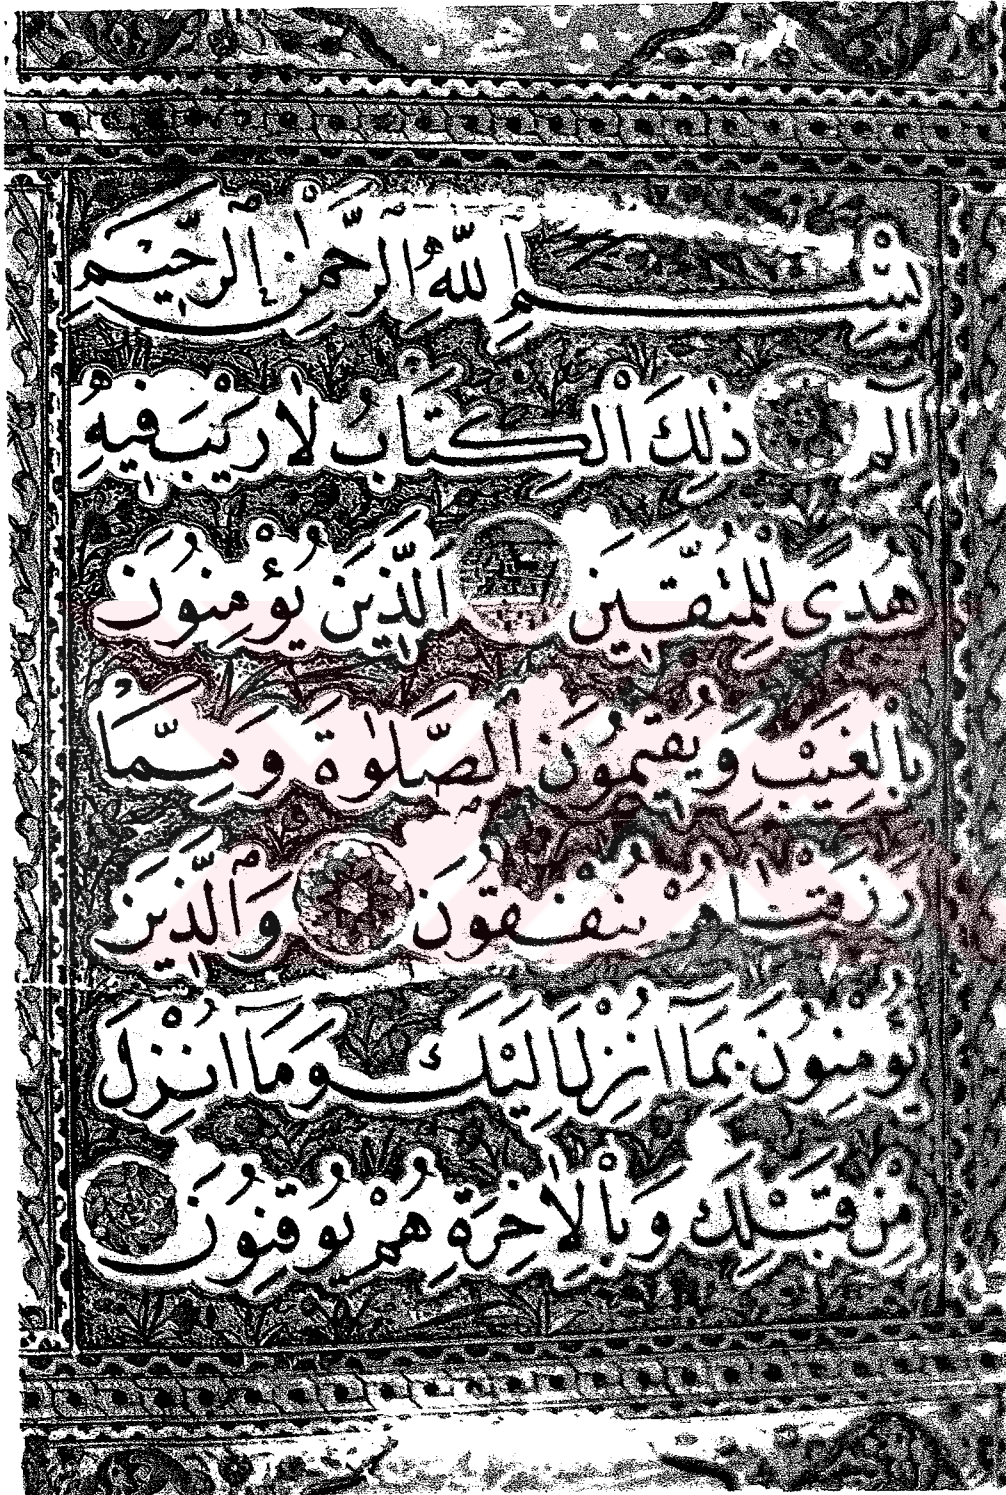 بِسْمِ اللهِ الرَّحْمٰنِ الرَّحِيْمِ
الٓمٓ ذٰلِكَ الْكِتَابُ لَا رَيْبَ فِيْهِ
هُدًى لِلْمُتَّقِيْنَ اَلَّذِيْنَ يُؤْمِنُوْنَ
بِالْغَيْبِ وَيُقِيْمُوْنَ الصَّلٰوةَ وَمِمَّا
رَزَقْنَاهُمْ يُنْفِقُوْنَ وَالَّذِيْنَ
يُؤْمِنُوْنَ بِمَٓا اُنْزِلَ اِلَيْكَ وَمَٓا اُنْزِلَ
مِنْ قَبْلِكَ وَبِالْاٰخِرَةِ هُمْ يُوْقِنُوْنَ